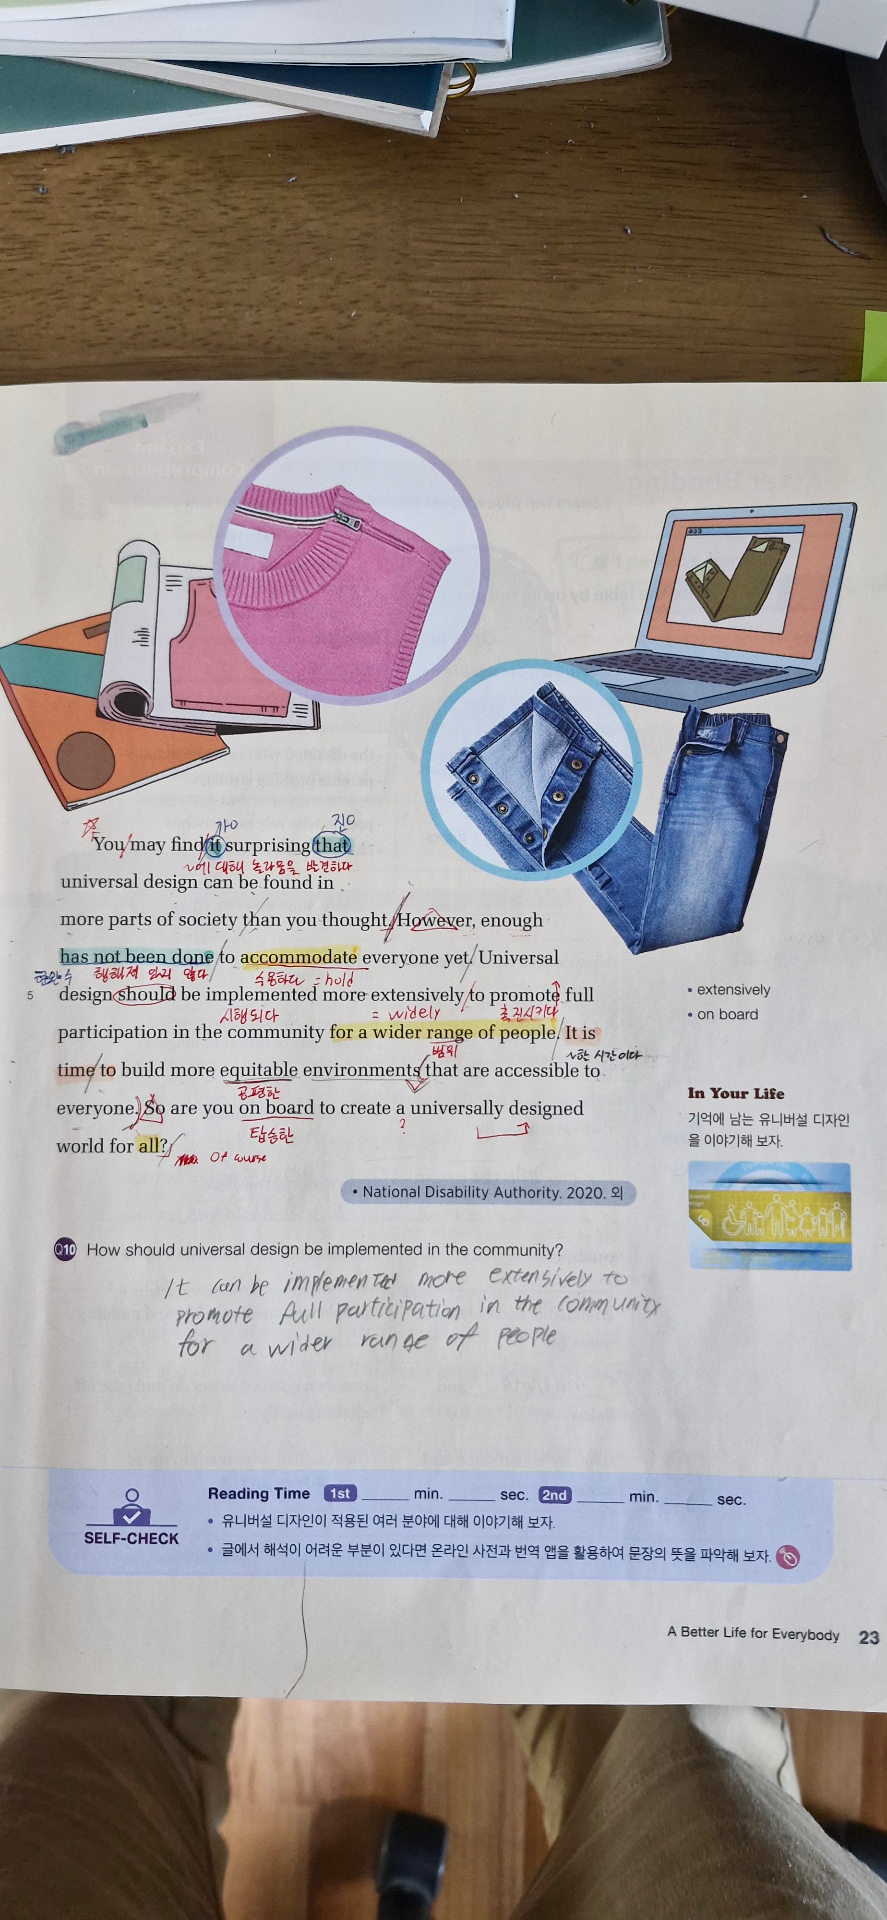 가O
진O
You may find it surprising that
~에 대해 놀라움을 발견하다
universal design can be found in
more parts of society than you thought. However, enough
has not been done to accommodate everyone yet. Universal
현완수
행해져 있지 않다
수용하다 = hold
5
design should be implemented more extensively to promote full
시행되다
= widely
촉진시키다
participation in the community for a wider range of people. It is
범위
~할 시간이다
time to build more equitable environments that are accessible to
공평한
everyone. So are you on board to create a universally designed
탑승한
?
world for all?
Of course
• extensively
• on board
In Your Life
기억에 남는 유니버설 디자인
을 이야기해 보자.
• National Disability Authority. 2020. 외
Q10 How should universal design be implemented in the community?
It can be implemented more extensively to
promote full participation in the community
for a wider range of people
SELF-CHECK
Reading Time 1st min. sec. 2nd min. sec.
• 유니버설 디자인이 적용된 여러 분야에 대해 이야기해 보자.
• 글에서 해석이 어려운 부분이 있다면 온라인 사전과 번역 앱을 활용하여 문장의 뜻을 파악해 보자.
A Better Life for Everybody 23